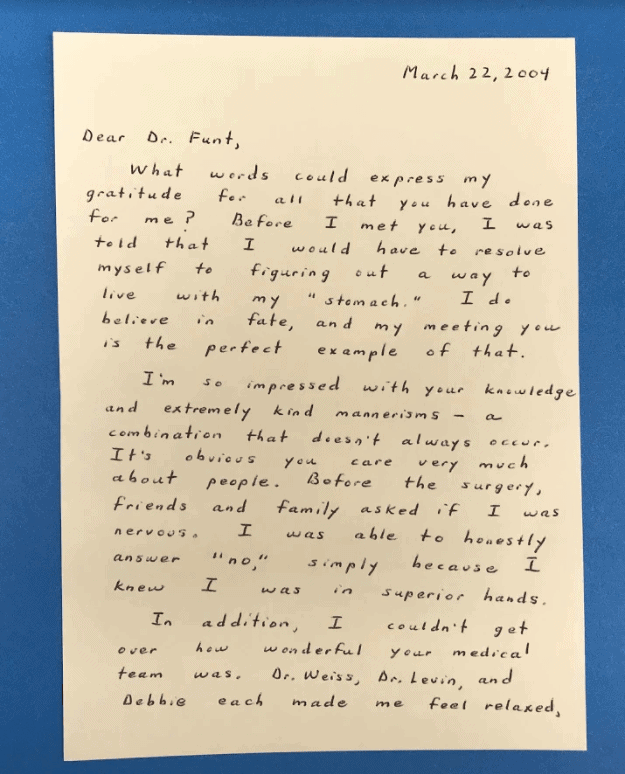 March 22, 2004
Dear Dr. Funt,
What words could express my
gratitude for all that you have done
for me? Before I met you, I was
told that I would have to resolve
myself to figuring out a way to
live with my "stomach." I do
believe in fate, and my meeting you
is the perfect example of that.
I'm so impressed with your knowledge
and extremely kind mannerisms – a
combination that doesn't always occur.
It's obvious you care very much
about people. Before the surgery,
friends and family asked if I was
nervous. I was able to honestly
answer "no," simply because I
knew I was in superior hands.
In addition, I couldn't get
over how wonderful your medical
team was. Dr. Weiss, Dr. Levin, and
Debbie each made me feel relaxed,